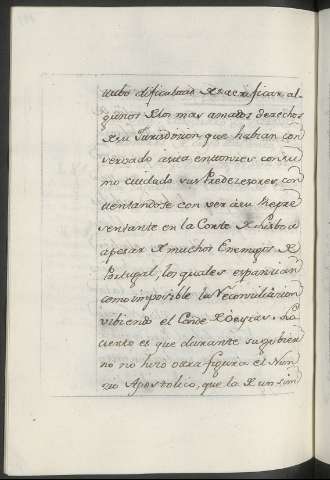 tubo dificultad de sacrificar al-
gunos de los mas amados derechos
de su Jurisdicion, que habian con
servado hasta entonces con su
mo cuidado sus Predecesores, con
tentandose con ver à su Repre
sentante en la Corte de Lisboa
apesar de muchos Enemigos de
Portugal, los quales esparcian
como imposible la Reconciliacion
vibiendo el Conde de Oeyras. Lo
cierto es que durante su gobier
no no hizo otra figura el Nun
zio Apostolico, que la de un sim